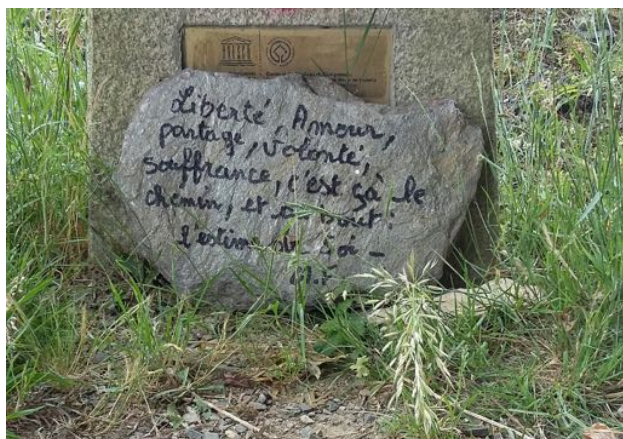 Liberté, Amour,
partage, volonté,
souffrance, c'est çà le
chemin, et a :
l'estime soi –